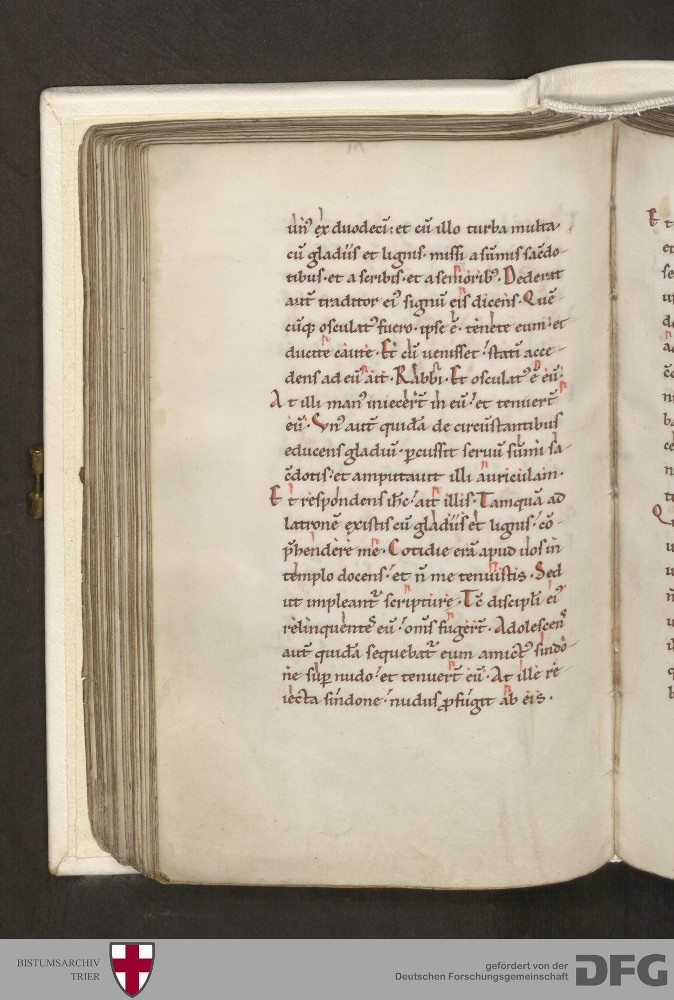 un᷒ ex duodeci᷒: et cū illo turba multa
cū gladiis et lignis· missi a sūmis sac̄do-
tibus· et a scribis· et a seniorib᷒· Dederat
aut̄ traditor ei᷒ signū eis dicens· Quē-
cūq; osculat᷒ fuero· ipse ē· tenete eum· et
ducite caute· Et cū venisset· statī acce-
dens ad eū ait· Rabbi· Et osculat᷒ ē eū·
At illi man᷒ iniecer̄t in eū· et tenuer̄t
eū· Un᷒ aut̄ quidā de circūstantibus
educens gladiū· p̱cussit seruū sūmi sa-
c̄dotis· et amputauit illi auriculam·
Et respondens ihc̄· ait illis· Tamquā ad
latronē existis cū gladiis et lignis· cō-
p̄hendere me· Cotidie erā apud uos in
templo docens· et n̄ me tenuistis· Sed
ut impleant᷒ scripture· Tc̄ discipli ei᷒
relinquentes eū· om̄s fuger̄t· Adolescen᷒
aut̄ quidā sequebat᷒ eum amict᷒ sindo-
ne sup̱ nudo· et tenuer̄t eū· At ille re-
iecta sindone· nudus ꝓfugit ab eis·
BISTUMSARCHIV
TRIER
gefördert von der
Deutschen Forschungsgemeinschaft
DFG